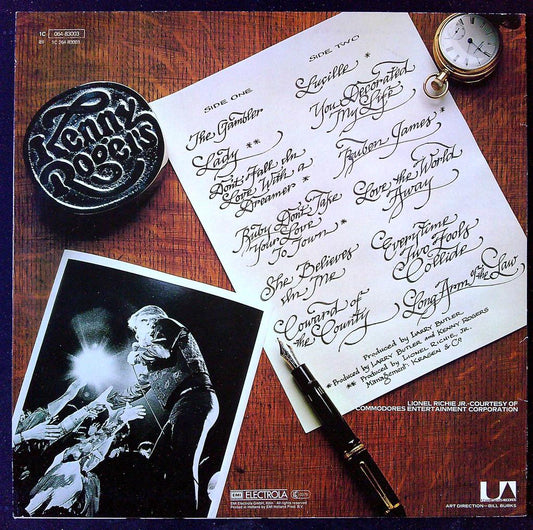 1C 064-83003
8Y 1C 264-83003
Kenny
Rogers
SIDE ONE
The Gambler
Lady **
Don't Fall In
Love With a
Dreamer *
Ruby Don't Take
Your Love
To Town *
She Believes
In Me
Coward of
the County
SIDE TWO
Lucille *
You Decorated
My Life
Reuben James *
Love the World
Away
Everytime
Two Fools
Collide
Long Arm of the Law
Produced by LARRY BUTLER
* Produced by LARRY BUTLER and KENNY ROGERS
** Produced by LIONEL RICHIE, JR.
Management: KRAGEN & CO
LIONEL RICHIE JR.-COURTESY OF
COMMODORES ENTERTAINMENT CORPORATION
EMI ELECTROLA
EMI Electrola GmbH, Köln All rights reserved
Printed in Holland by EMI Holland Fred. B.V.
UA
ART DIRECTION—BILL BURKS